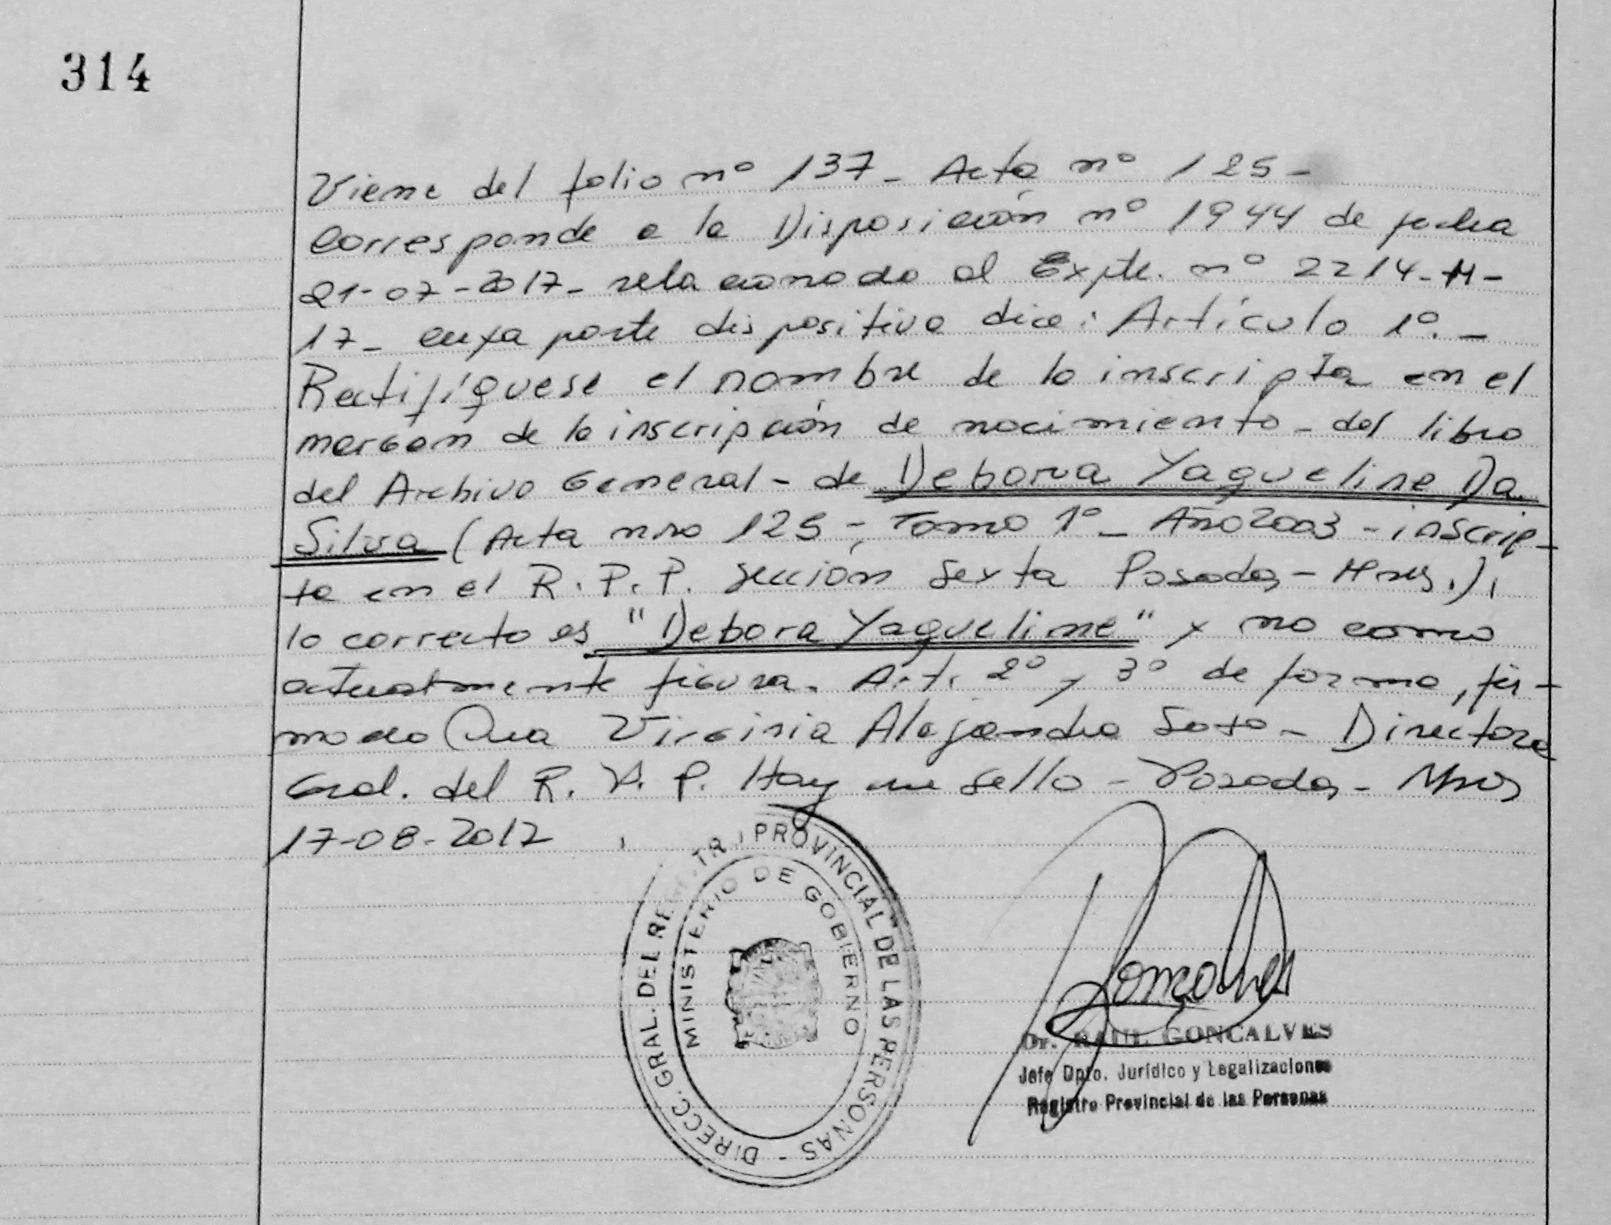 314
Viene del folio nº 137- Acta nº 125-
Corresponde a la Disposición nº 1944 de fecha
21-07-2017- relacionado al Expte. nº 2214-H-
17- cuya parte dispositiva dice: Artículo 1º.-
Rectifíquese el nombre de la inscripta en el
margen de la inscripción de nacimiento - del libro
del Archivo General - de Debora Yaqueline Da
Silva (Acta nro 125 -, Tomo 1º - Año 2003 - inscrip-
ta en el R.P.P. sección Sexta Posadas - Mnes.),
lo correcto es "Debora Yaqueline" y no como
actualmente figura. Art. 2º y 3º de forma, fir-
mado Dra Virginia Alejandra Soto - Directora
Gral. del R. P. P. Hay un sello - Posadas - Mnes
17-08-2017
DIRECC. GRAL. DEL REGISTRO PROVINCIAL DE LAS PERSONAS -
MINISTERIO DE GOBIERNO
Dr. RAUL GONCALVES
Jefe Dpto. Jurídico y Legalizaciones
Registro Provincial de las Personas